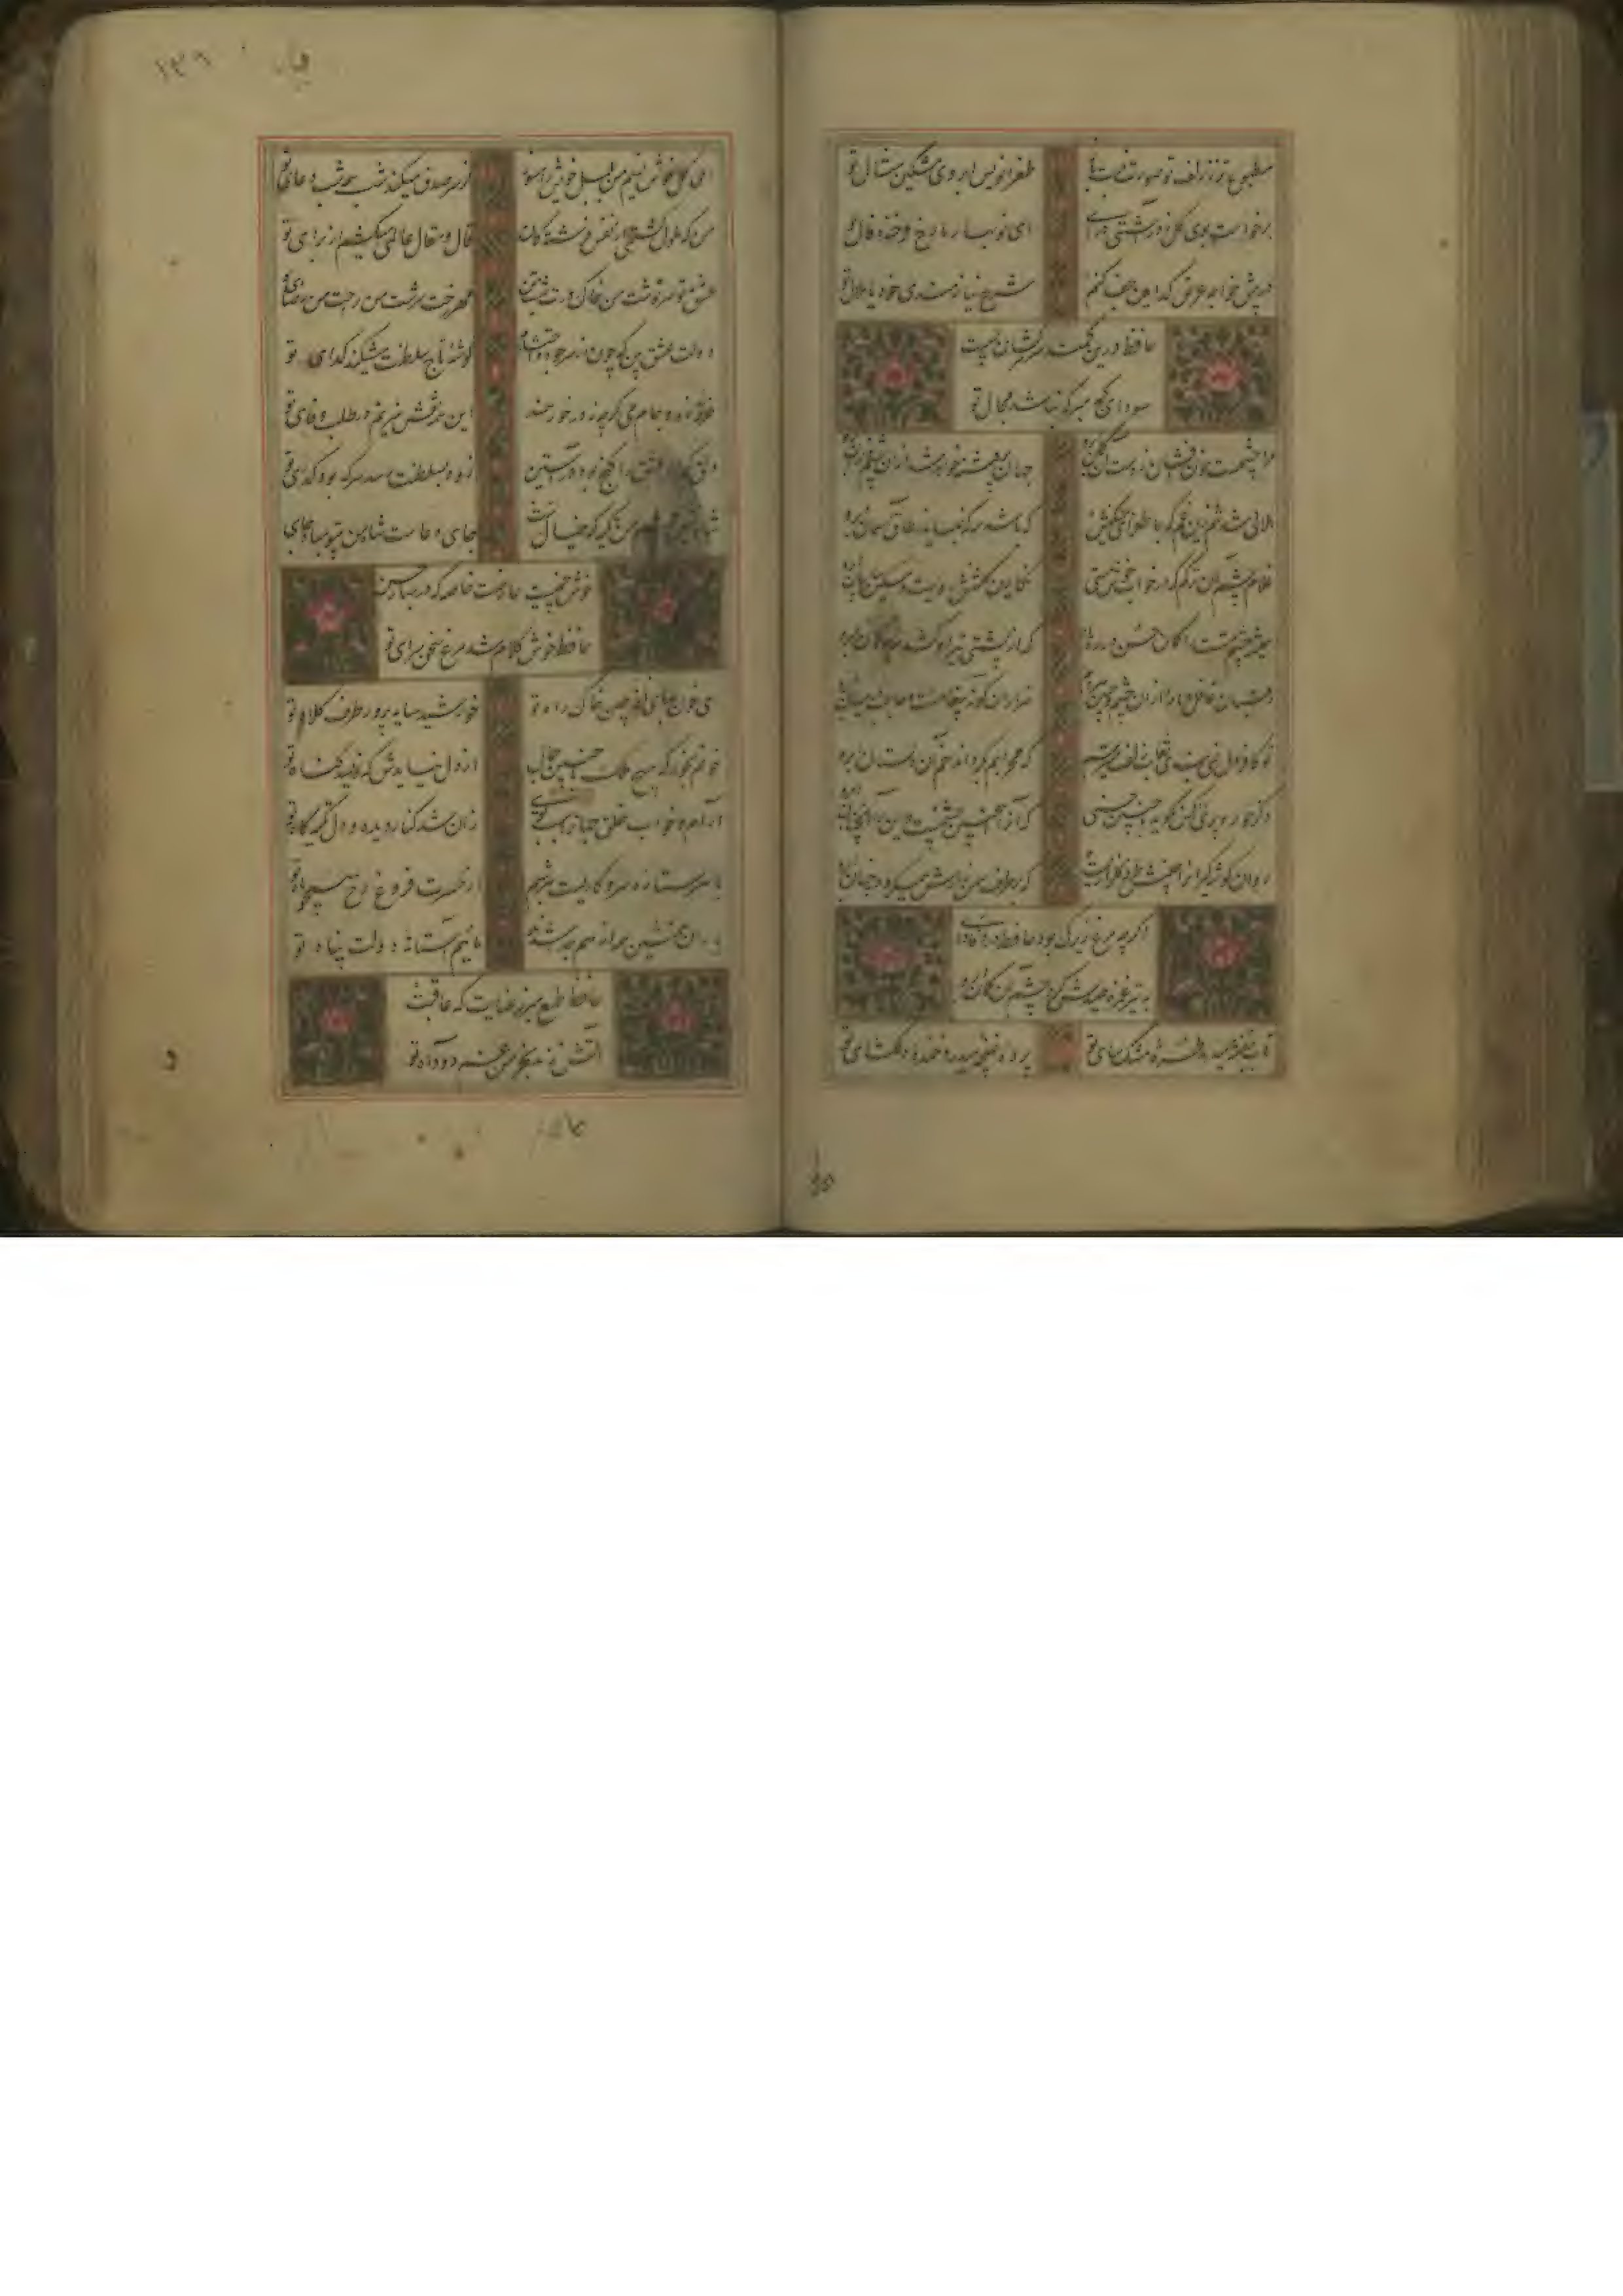 مطبوع‌تر ز زلف تو صورت نبست باز طغرانویس ابروی مشکین مثال تو
برخاست بوی گل ز در آشتی درآی ای نوبهار ما رخ فرخنده فال تو
در پیش خواجه عرض کدامین جفا کنم شرح نیازمندی خود یا ملال تو
حافظ درین کمند سر سرکشان بسیست
سودای کج مپز که نباشد مجال تو
مرا چشمیست خون افشان ز دست آن کمان ابرو جهان پر فتنه خواهد شد از آن چشم و از آن ابرو
هلالی شد تنم زین غم که با طغرای مشکینش که باشد مه که بنماید ز طاق آسمان ابرو
غلام چشم آن ترکم که در خواب خوش مستی نگارین گلشنش رویست و مشکین سایبان ابرو
که از پشتی تیر او کشد مه کمان ابرو
رقیبان غافل و ما را از آن چشم و جبین هر دم هزاران گونه پیغامست و حاجب در میان ابرو
تو کافر دل نمی‌بندی نقاب زلف و میترسم که محرابم بگرداند خم آن دلستان ابرو
دگر حور و پری را کس نگوید با چنین حسنی که آنرا اینچنین چشمست و این را آنچنان ابرو
روان گوشه‌گیران را جبینش طرفه گلزاریست که بر طرف سمن‌زارش همی‌گردد چمان ابرو
اگرچه مرغ زیرک بود حافظ در هواداری
به تیر غمزه صیدش کرد چشم آن کمان ابرو
تاب بنفشه میدهد طره مشک‌سای تو پرده غنچه میدرد خنده دلگشای تو
ای گل خوش نسیم من بلبل خویش را مسوز کز سر صدق میکند شب همه شب دعای تو
من که ملول گشتمی از نفس فرشتگان قال و مقال عالمی میکشم از برای تو
عشق تو سرنوشت من خاک درت بهشت من مهر رخت سرشت من راحت من رضای تو
دولت عشق بین که چون از سر جاه و احتشام گوشه تاج سلطنت میشکند گدای تو
خرقه زهد و جام می گرچه نه در خور همند این همه نقش میزنم در طلب وفای تو
دلق گدای عشق را گنج بود در آستین زود به سلطنت رسد هر که بود گدای تو
شاه‌نشین چشم من تکیه‌گه خیال تست جای دعاست شاه من بیتو مباد جای تو
خوش چمنیست عارضت خاصه که در بهار حسن
حافظ خوش کلام شد مرغ سخن‌سرای تو
ای خونبهای نافه چین خاک راه تو خورشید سایه‌پرور طرف کلاه تو
خونم بخور که هیچ ملک با چنین جمال از دل نیایدش که نویسد گناه تو
آرام و خواب خلق جهان را سبب تویی زان شد کنار دیده و دل تکیه‌گاه تو
با هر ستاره سر و کاریست هر شبم از حسرت فروغ رخ همچو ماه تو
یاران همنشین همه از هم جدا شدند مائیم آستانه دولت پناه تو
حافظ طمع مبر ز عنایت که عاقبت
آتش زند بخرمن غم دود آه تو